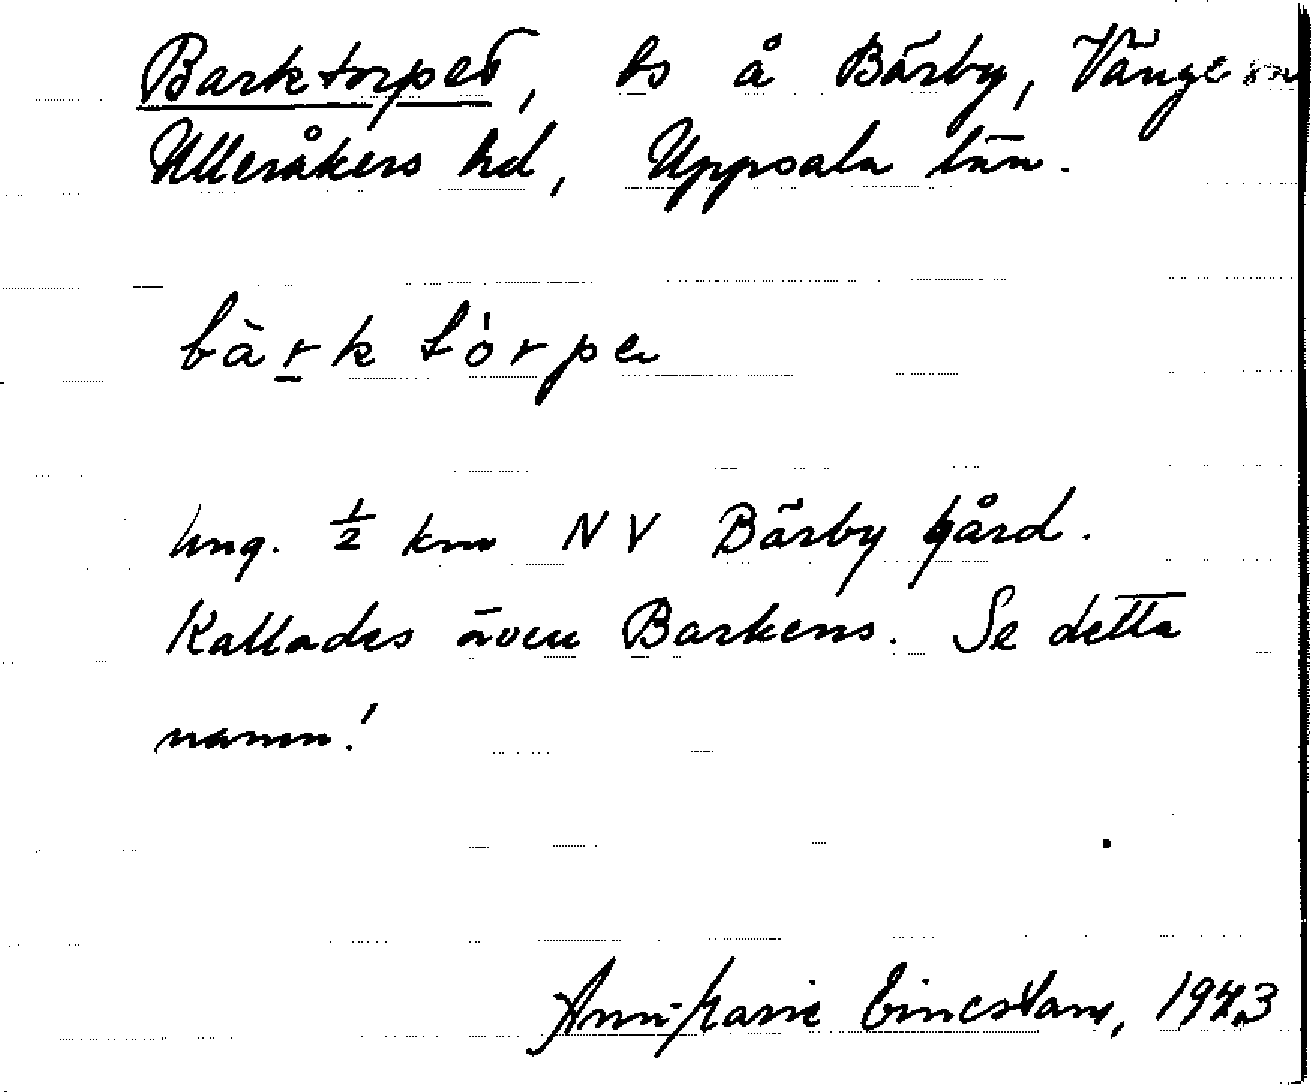 Barktorpet, ls å Bärby, Vänge sn
Ulleråkers hd, Uppsala län.
bàrk tórpe
Ung. ½ km NV Bärby gård.
Kallades även Barkens. Se detta
namn!
Ann-Marie 1943